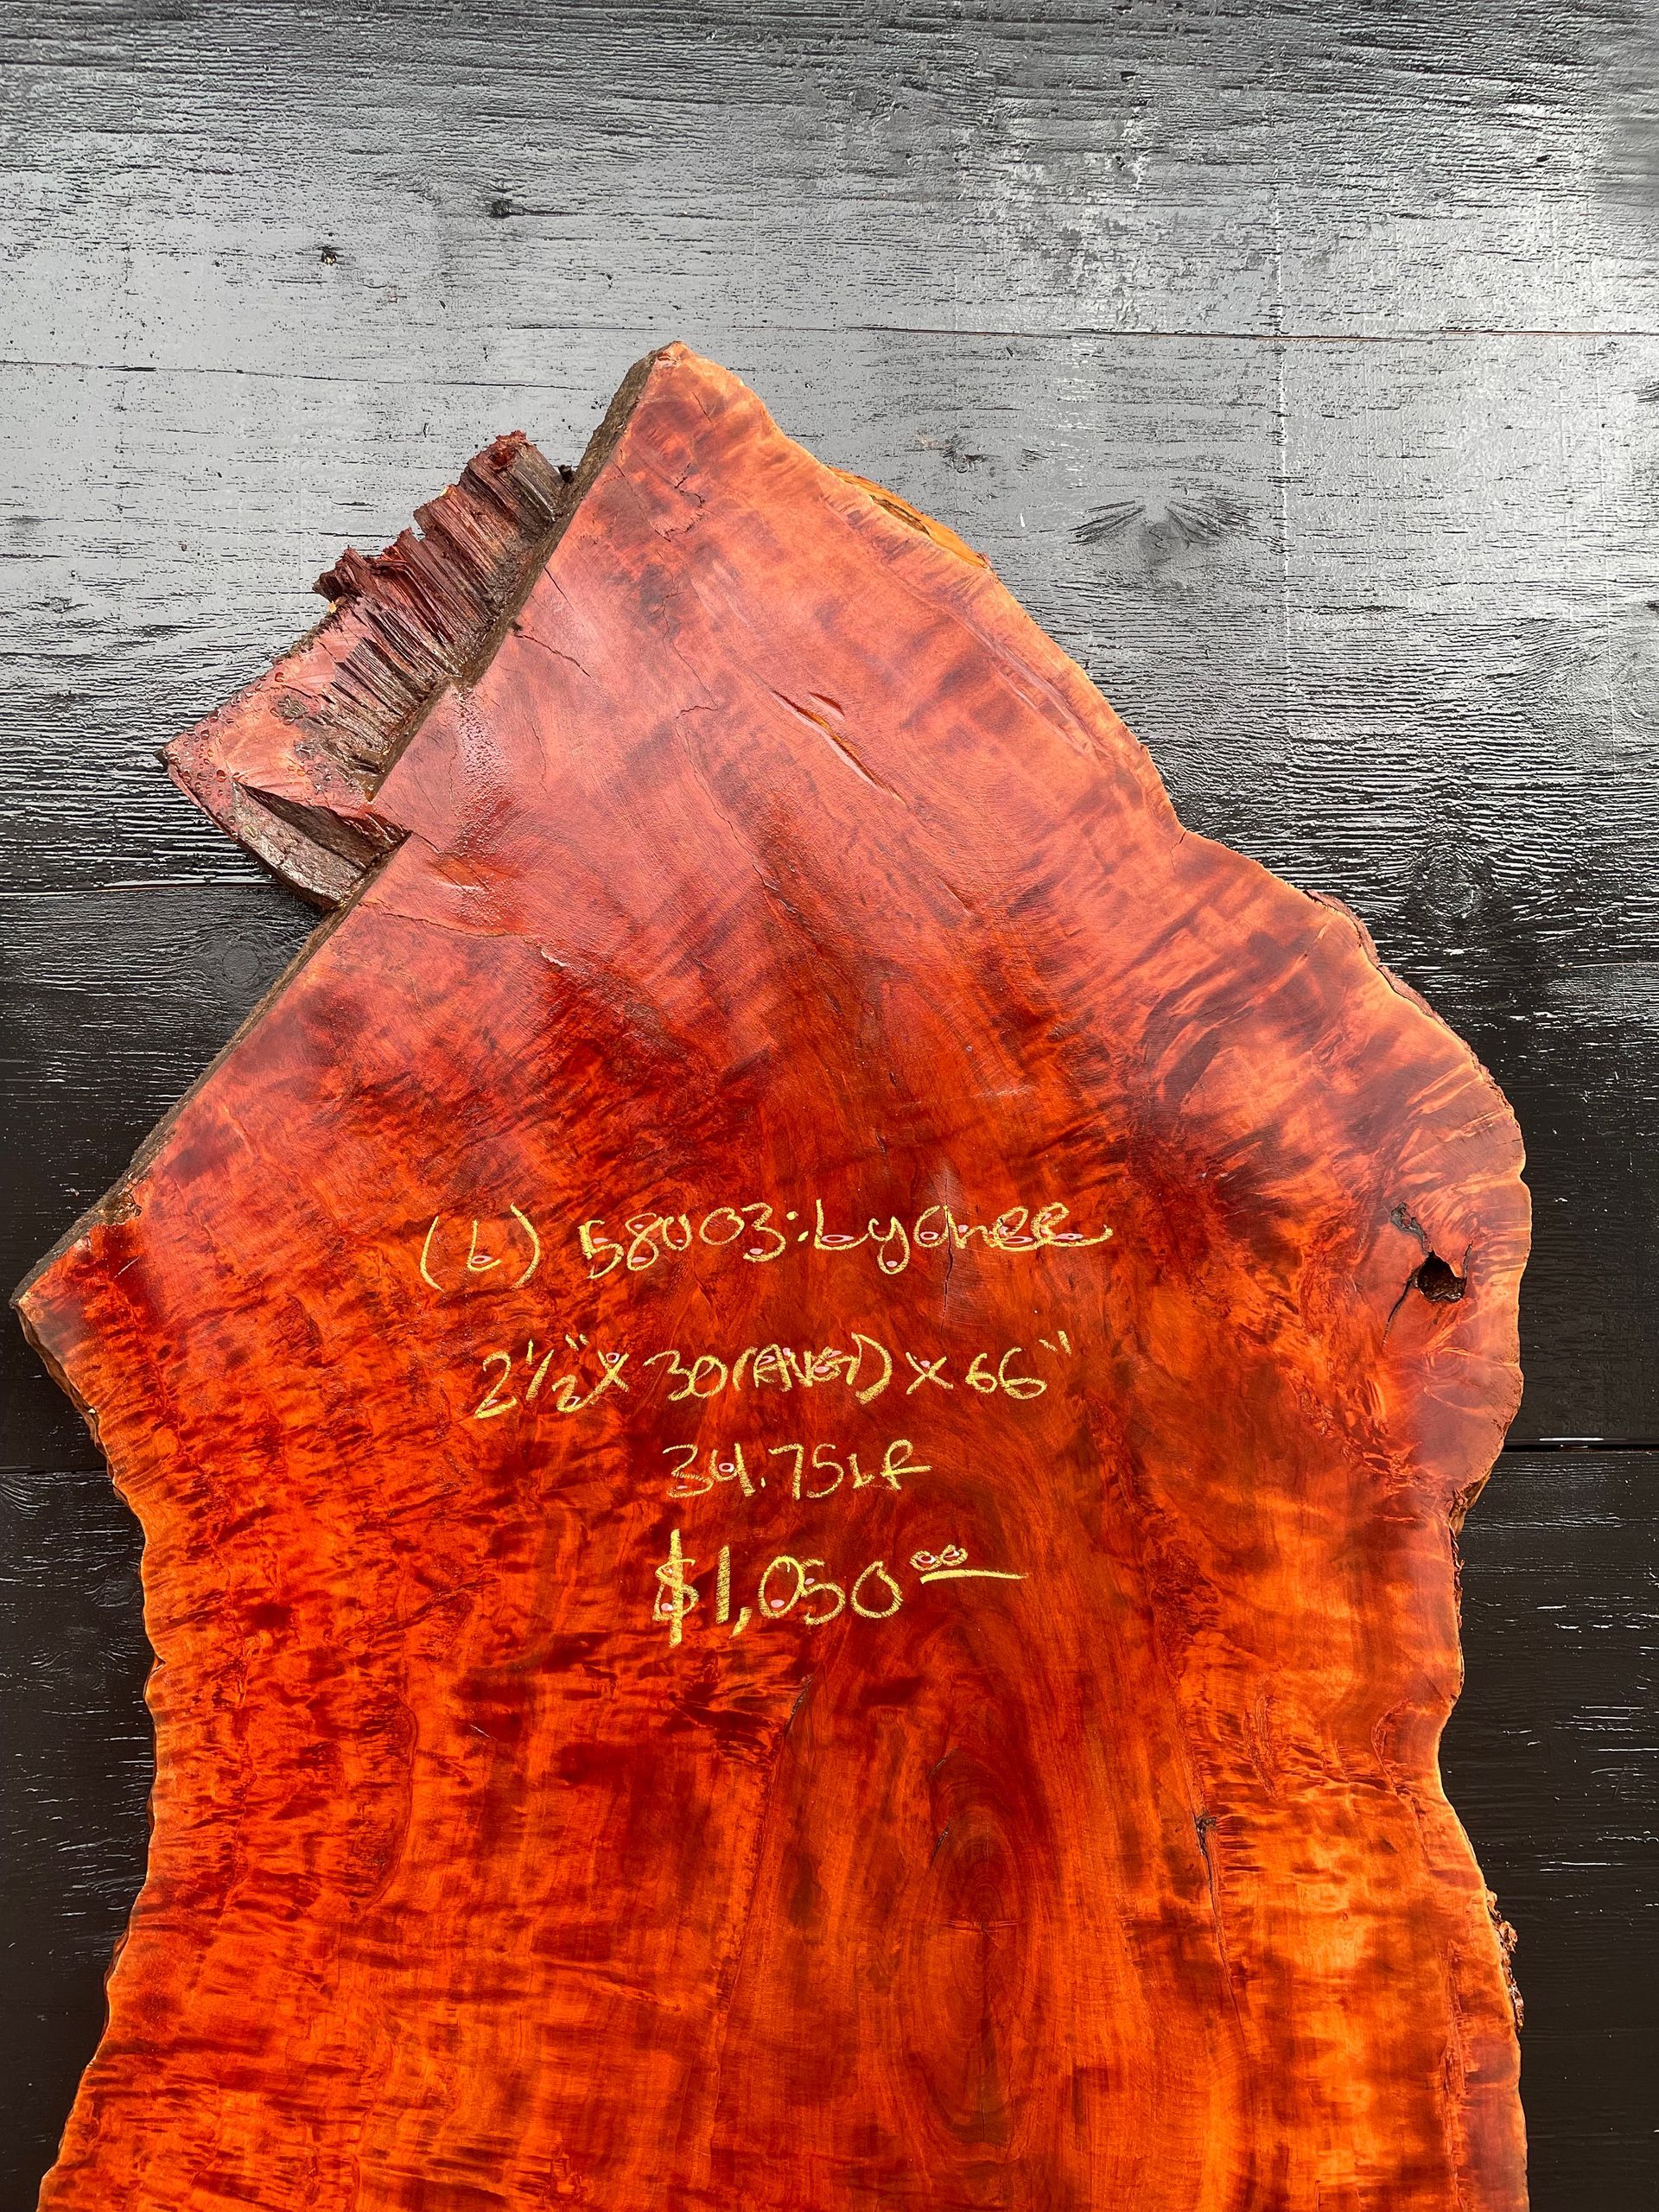 (L) 58003:Lychee
2½" X 30(AVG) X 66"
34.75LF
$1,050⁰⁰